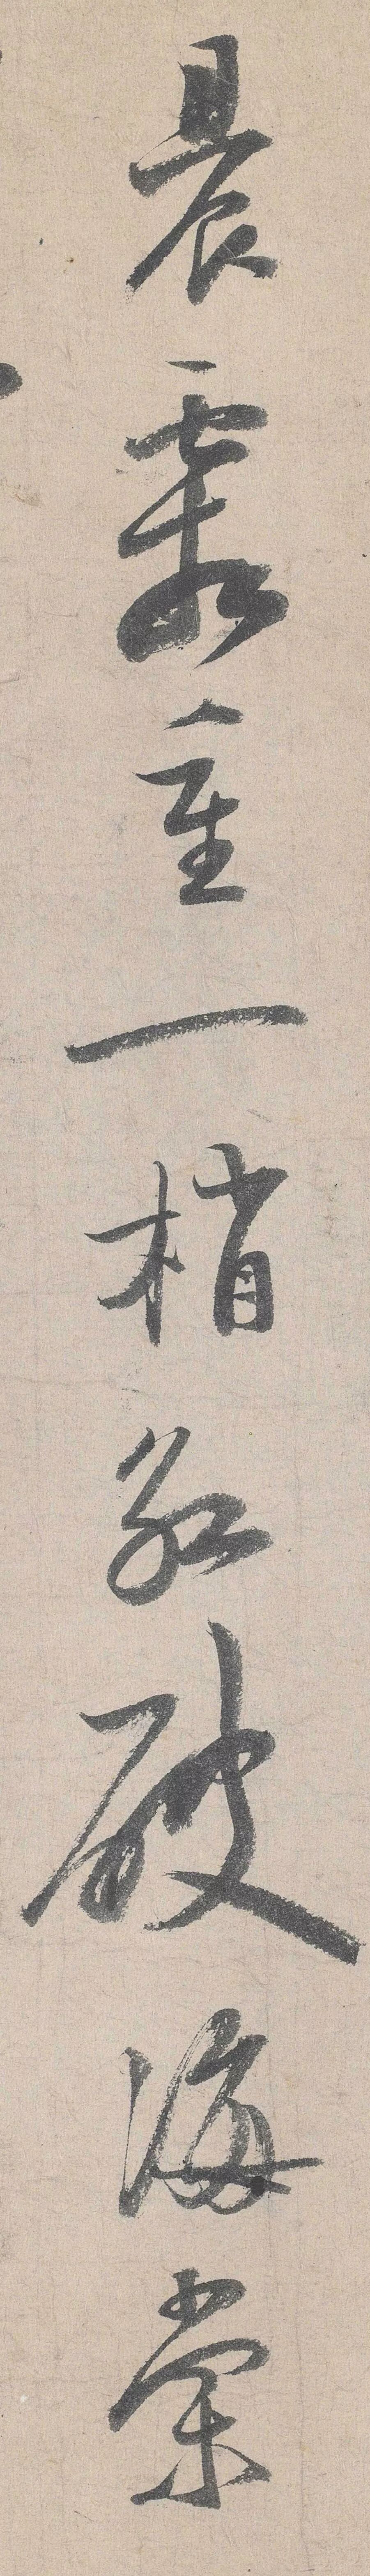 晨露重一梢紅破海棠